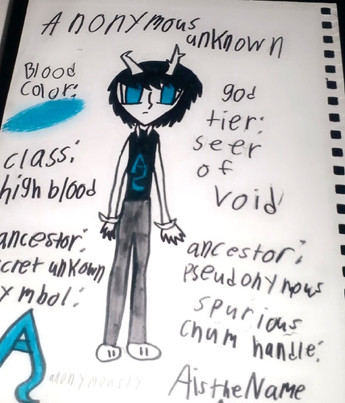 Anonymous
unknown
Blood
Color:
god
tier:
seer
of
Void
class:
high blood
ancestor:
cret unknown
ymbol:
ancestor:
pseudonymous
spurious
chum handle:
AistheName
anonymously